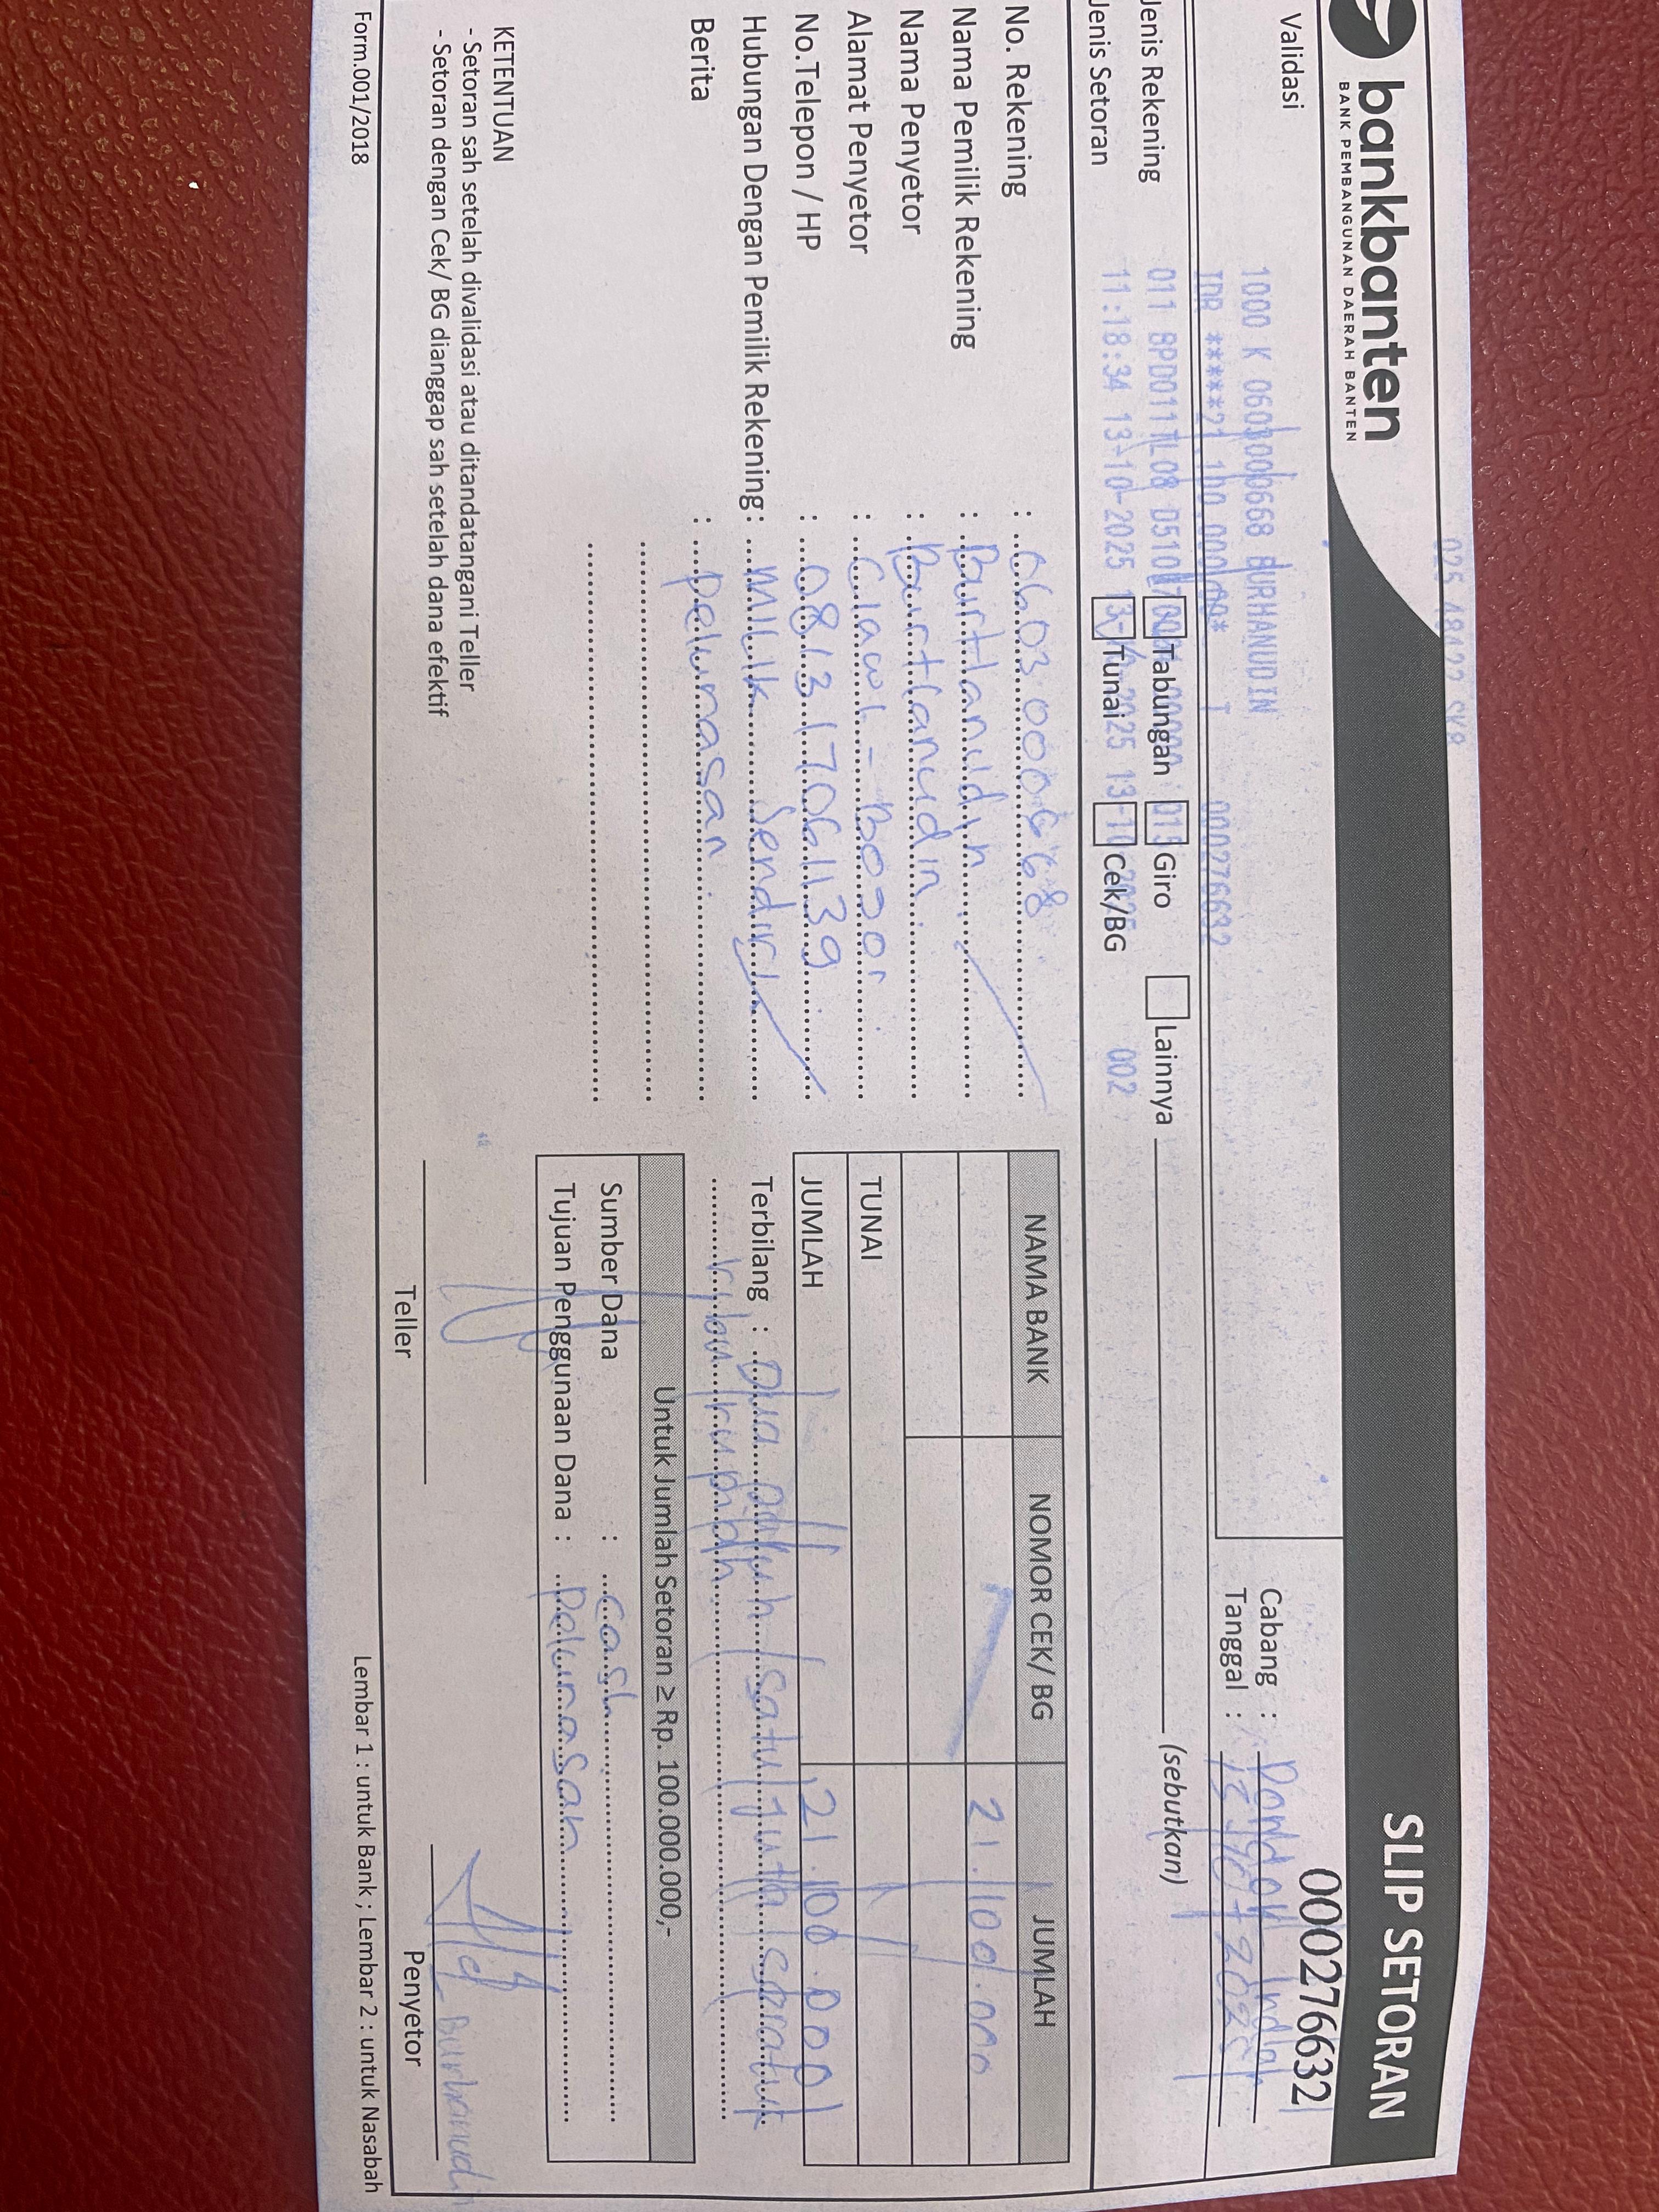 bankbanten
BANK PEMBANGUNAN DAERAH BANTEN
SLIP SETORAN
000276632
Validasi
1000 K 0603000668 BURHANUDIN
IDR *****21,100,000.00* T 000276632
011 BPD011TL08 D510
11:18:34 13-10-2025 13-10-2025 13-10-2025 002
Cabang : Pondok Indah
Tanggal : 13/10/2025
Jenis Rekening Tabungan Giro Lainnya (sebutkan)
Jenis Setoran Tunai Cek/BG
No. Rekening : 0603000668
Nama Pemilik Rekening : Burhanudin
Nama Penyetor : Burhanudin
Alamat Penyetor : Ciawi - Bogor
No.Telepon / HP : 081317061139
Hubungan Dengan Pemilik Rekening : Milik Sendiri
Berita : pelunasan
NAMA BANK NOMOR CEK/ BG JUMLAH
21.100.000
TUNAI
JUMLAH 21.100.000
Terbilang : Dua puluh satu juta seratus
ribu rupiah
Untuk Jumlah Setoran ≥ Rp. 100.000.000,-
Sumber Dana : Cash
Tujuan Penggunaan Dana : pelunasan
KETENTUAN
- Setoran sah setelah divalidasi atau ditandatangani Teller
- Setoran dengan Cek/ BG dianggap sah setelah dana efektif
Burhanudin
Teller
Penyetor
Form.001/2018
Lembar 1 : untuk Bank ; Lembar 2 : untuk Nasabah